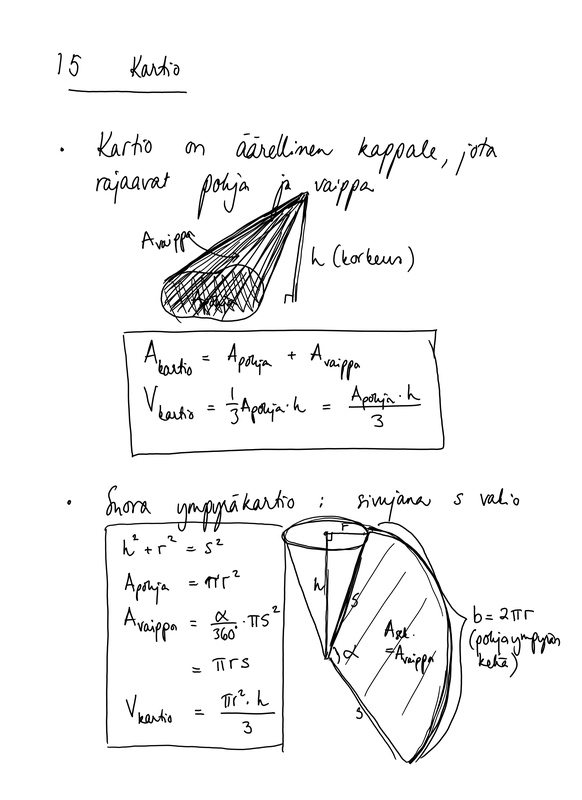 15 Kartio
• Kartio on äärellinen kappale, jota
rajaavat pohja ja vaippa
Avaippa
h (korkeus)
Apohja
Akartio = Apohja + Avaippa
Vkartio = 1/3 Apohja · h = Apohja · h / 3
• Suora ympyräkartio : sivujana s vakio
h² + r² = s²
Apohja = πr²
Avaippa = α/360° · πs²
= πrs
Vkartio = πr² · h / 3
r
h
s
α
Asekt.
= Avaippa
s
b = 2πr
(pohjaympyrän
kehä)